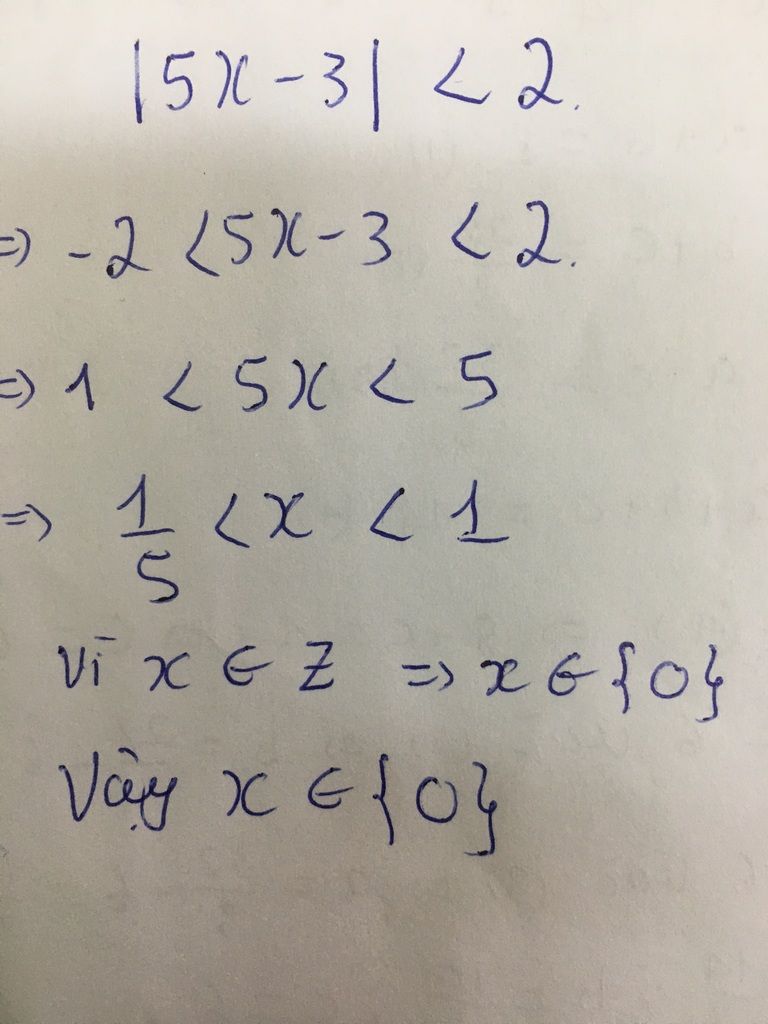 |5x-3| < 2.
=> -2 < 5x-3 < 2.
=> 1 < 5x < 5
=> 1/5 < x < 1
Vì x ∈ Z => x ∈ {0}
Vậy x ∈ {0}